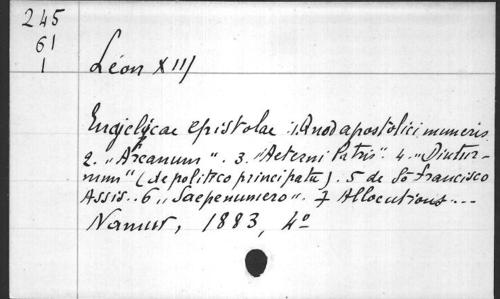 245
61
1
Léon XIII
Encyclycae epistolae : 1. Quod apostolici muneris
2. „Arcanum". 3. „Aeterni Patris" 4. „Diutur-
num" (de politico principatu). 5 de So Francisco
Assis.. 6 „Saepenumero". 7 Allocutions...
Namur, 1883, 4o